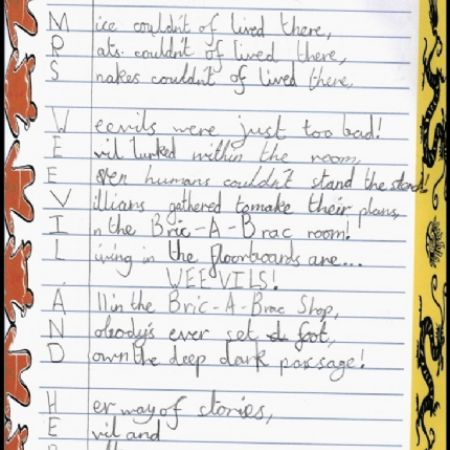 Mice couldn't of lived there,
Rats couldn't of lived there,
Snakes couldn't of lived there.
Weevils were just too bad!
Evil lurked within the room,
Even humans couldn't stand the stench!
Villians gathered to make their plans,
In the Bric-A-Brac room!
Living in the floorboards are....
WEEVILS!
All in the Bric-A-Brac Shop,
Nobody's ever set foot,
Down the deep dark passage!
Her way of stories,
Evil and